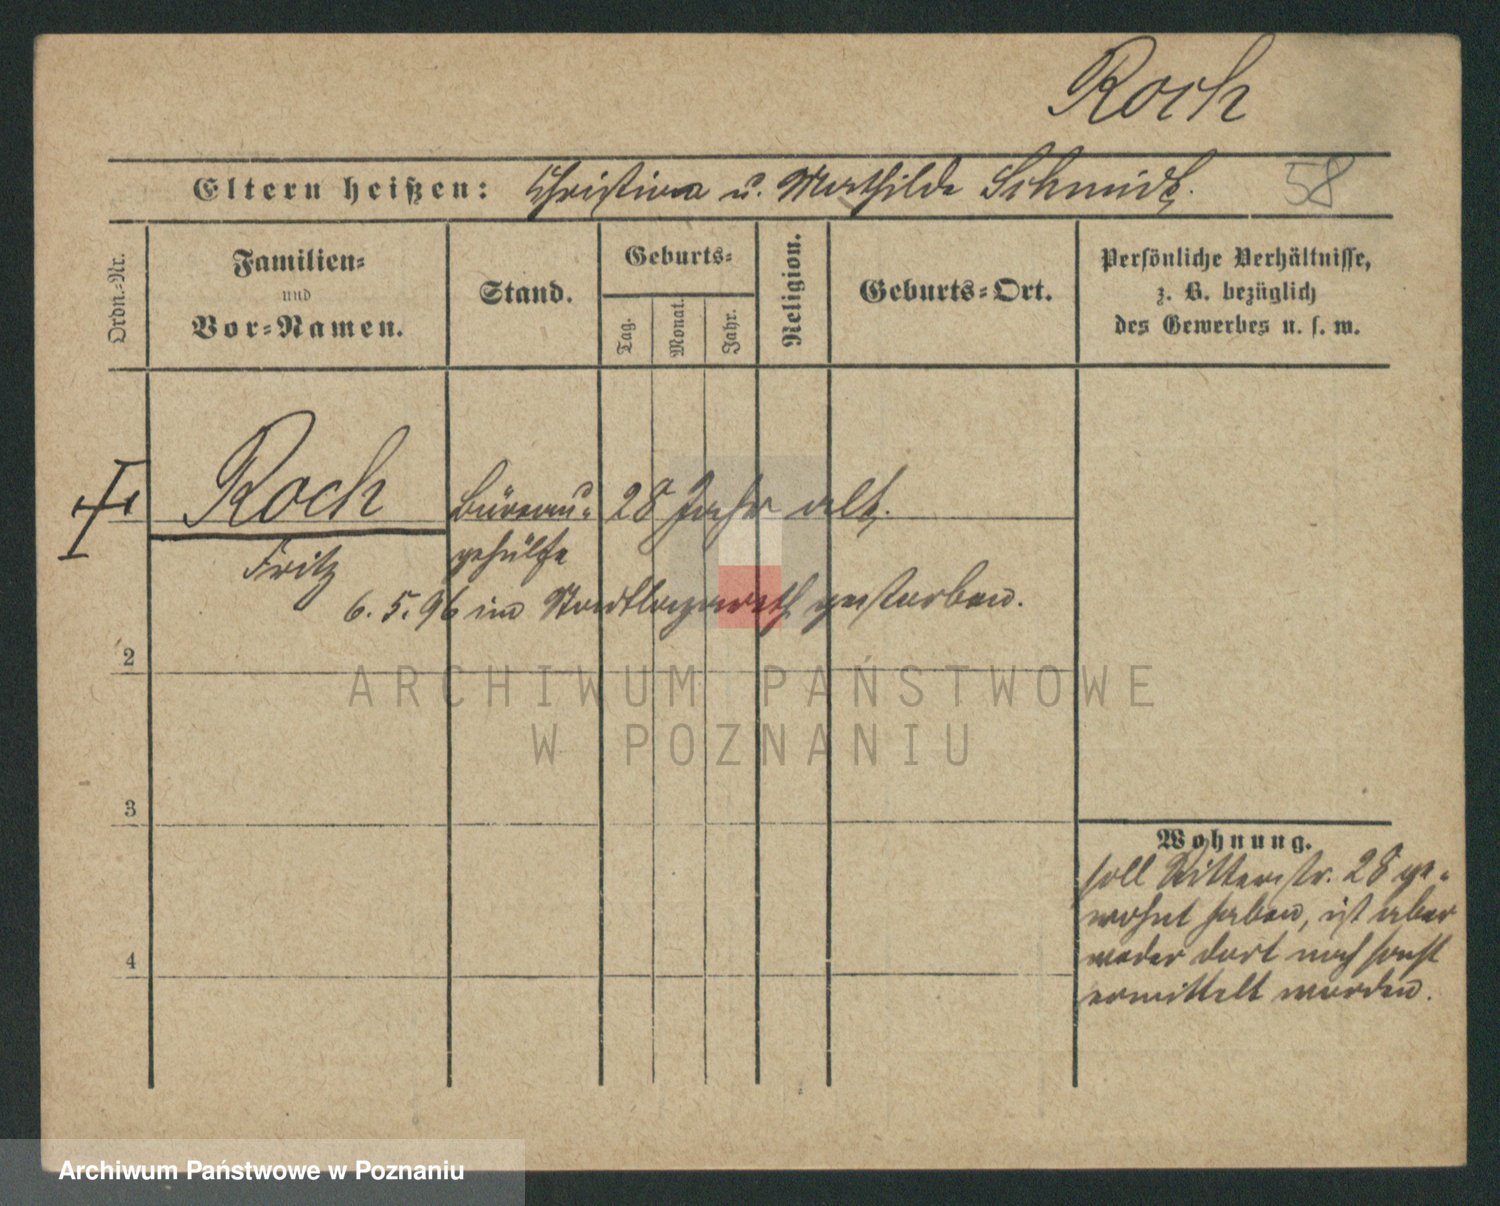 Roch
Eltern heißen: Christian u. Mathilde Schmidt. 58
Ordn.-Nr.
Familien-
und
Vor-Namen.
Stand.
Geburts-
Tag.
Monat.
Jahr.
Religion.
Geburts-Ort.
Persönliche Verhältnisse,
z. B. bezüglich
des Gewerbes u. s. w.
Roch
Büreau- 28 Jahr alt.
Fritz
gehülfe
6. 5. 96 im Stadtlazareth gestorben.
2
ARCHIWUM PAŃSTWOWE
W POZNANIU
3
Wohnung.
soll Ritterstr. 28 ge-
wohnt haben, ist aber
weder dort noch sonst
ermittelt worden.
4
Archiwum Państwowe w Poznaniu